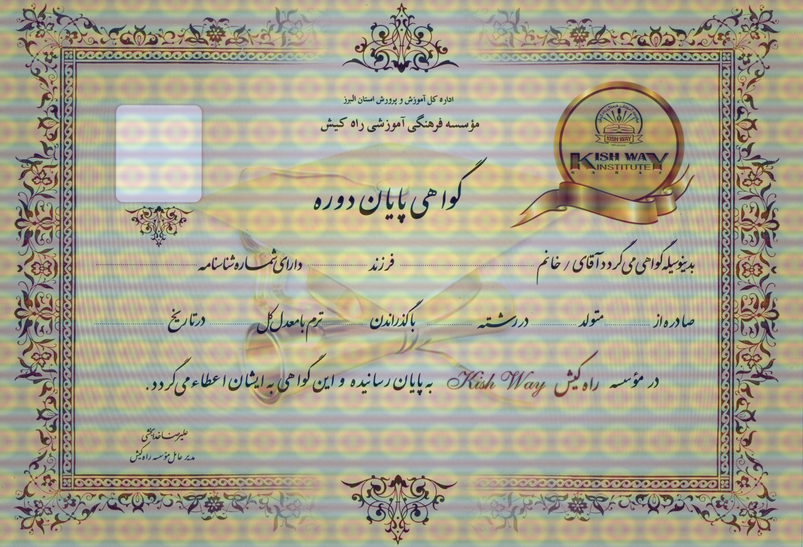 اداره کل آموزش و پرورش استان البرز
مؤسسه فرهنگی آموزشی راه کیش
KISH WAY
KISH WAY
INSTITUTE
گواهی پایان دوره
بدینوسیله گواهی می گردد آقای / خانم فرزند دارای شماره شناسنامه
صادره از متولد در رشته با گذراندن ترم با معدل کل در تاریخ
در مؤسسه راه کیش Kish Way به پایان رسانیده و این گواهی به ایشان اعطاء می گردد.
علیرضا خدابخشی
مدیر عامل مؤسسه راه کیش